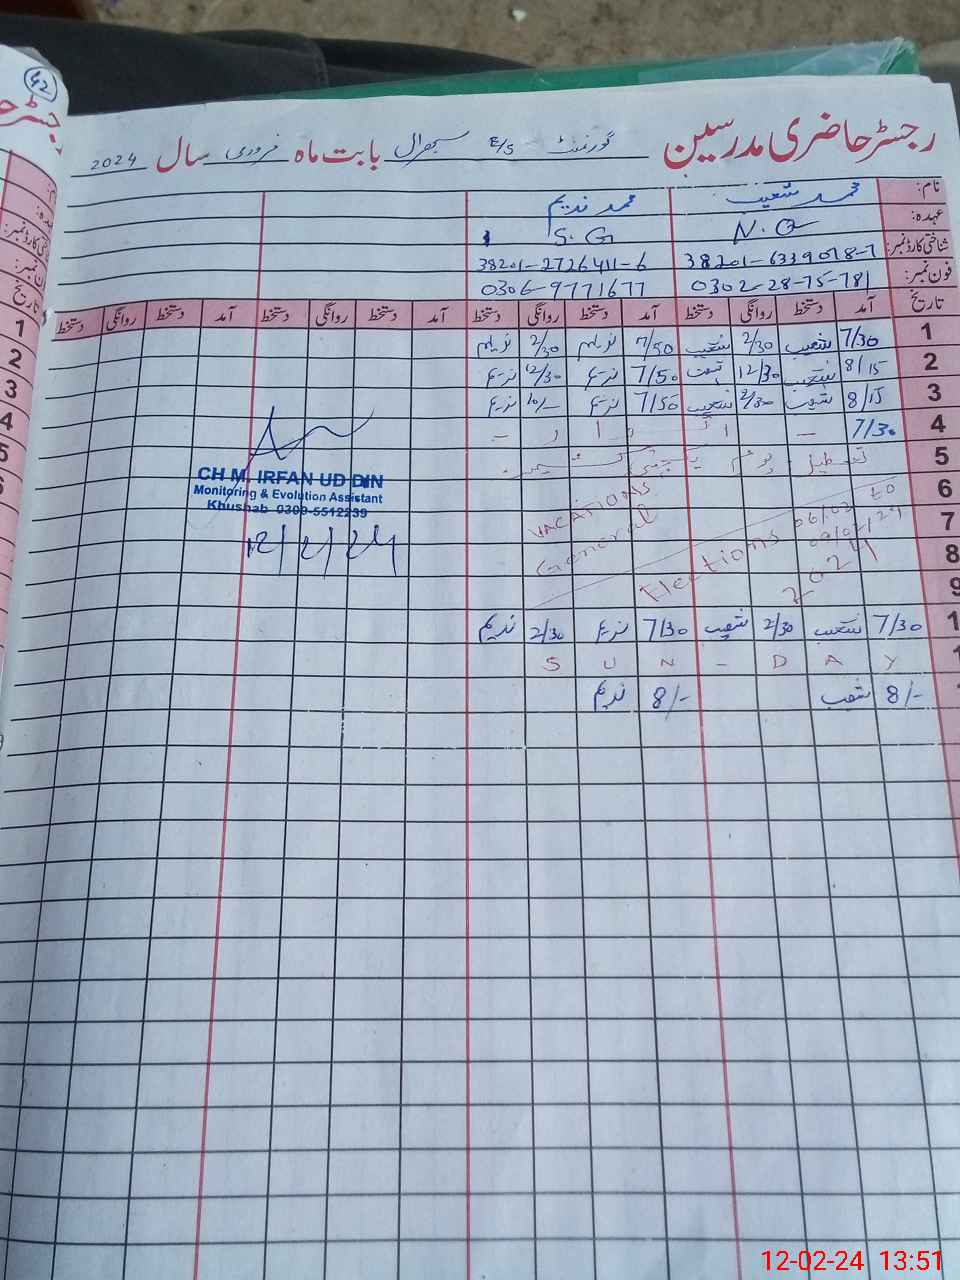 42
رجسٹر حاضری مدرسین گورنمنٹ E/S سبھرال بابت ماہ فروری سال 2024
نام: محمد شعیب محمد ندیم
عہدہ: N.Q S.G
شناختی کارڈ نمبر: 38201-6339078-7 38201-2726411-6
فون نمبر: 0302-28-75-781 0306-9771677
تاریخ آمد دستخط روانگی دستخط آمد دستخط روانگی دستخط آمد دستخط روانگی دستخط آمد دستخط روانگی دستخط
1 7/30 شعیب 2/30 شعیب 7/50 ندیم 2/30 ندیم
2 8/15 شعیب 12/30 شعیب 7/50 ندیم 12/30 ندیم
3 8/15 شعیب 2/30 شعیب 7/50 ندیم 10/- ندیم
4 7/30 - ا ت و ا ر -
5 تعطیل یوم یکجہتی کشمیر
6
7
8
9
VACATIONS
General
Elections 06/02 to
09/02/24
2024
CH M. IRFAN UD DIN
Monitoring & Evolution Assistant
Khushab 0300-5512239
12/2/24
1 7/30 شعیب 2/30 شعیب 7/30 ندیم 2/30 ندیم
1 S U N - D A Y
1 8/- شعیب 8/- ندیم
12-02-24 13:51